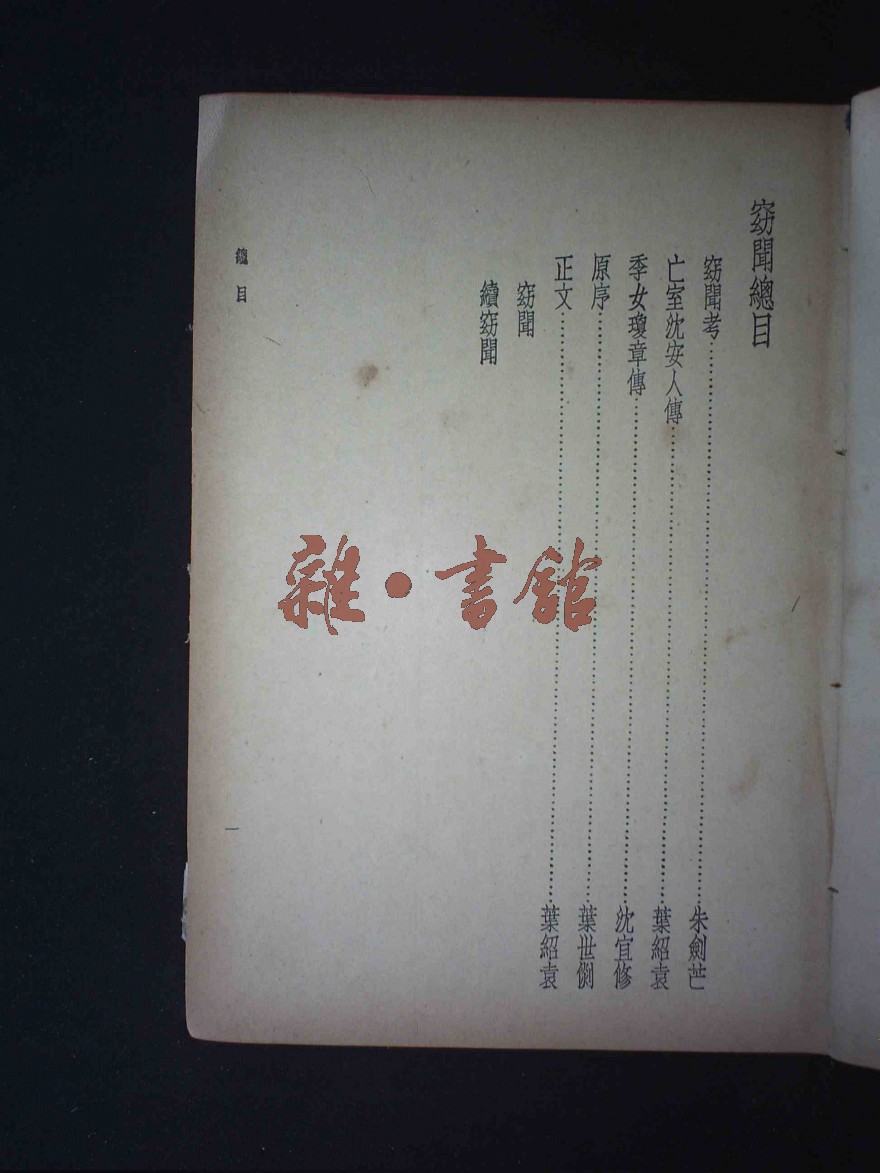 窈聞總目
窈聞考……朱劍芒
亡室沈安人傳……葉紹袁
季女瓊章傳……沈宜修
原序……葉世侗
正文……葉紹袁
窈聞
續窈聞
總目
一
雜·書館